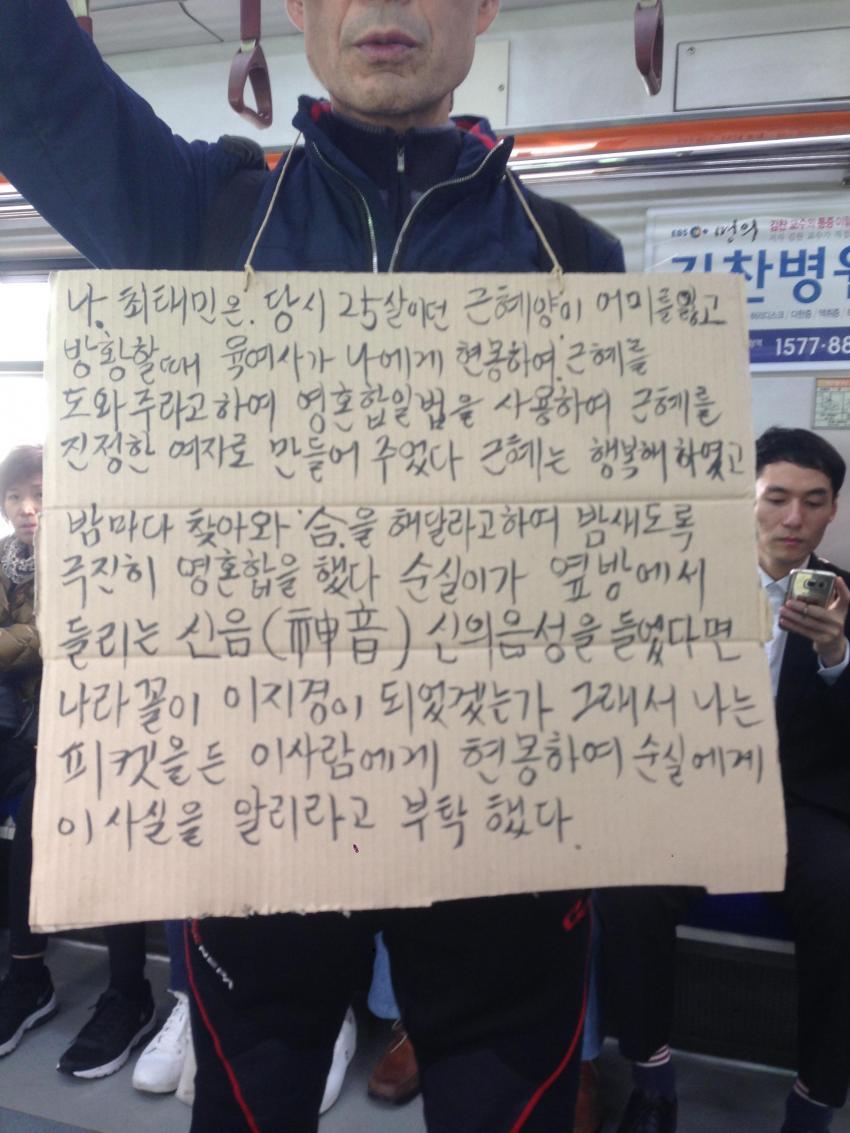 나. 최태민은. 당시 25살이던 근혜양이 어미를 잃고
방황할때 육여사가 나에게 현몽하여. 근혜를
도와주라고하여 영혼합일법을 사용하여 근혜를
진정한 여자로 만들어 주었다 근혜는 행복해 하였고
밤마다 찾아와 '合'을 해달라고하여 밤새도록
극진히 영혼합을 했다 순실이가 옆방에서
들리는 신음(神音) 신의음성을 들었다면
나라꼴이 이지경이 되었겠는가 그래서 나는
피켓을든 이사람에게 현몽하여 순실에게
이사실을 알리라고 부탁 했다.
EBS 명의
김찬병원
1577-88